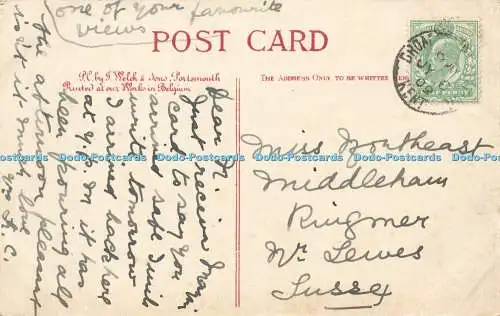 one of your favourite
views
POST CARD
P.C. by J. Welch & Sons, Portsmouth
Printed at our Works in Belgium
THE ADDRESS ONLY TO BE WRITTEN
Dear N.
Just receive
card to say you
arrived safe I will
write tomorrow
I arrived back here
at 7 p.m it has
been pouring all
the afternoon pleasant
isn't it. Much love
Yrs A. C.
Miss Northeast
Middleham
Ringmer
Nr Lewes
Sussex
Dodo-Postcards Dodo-Postcards Dodo-Postcards Dodo-Postcards Dodo-Postcards